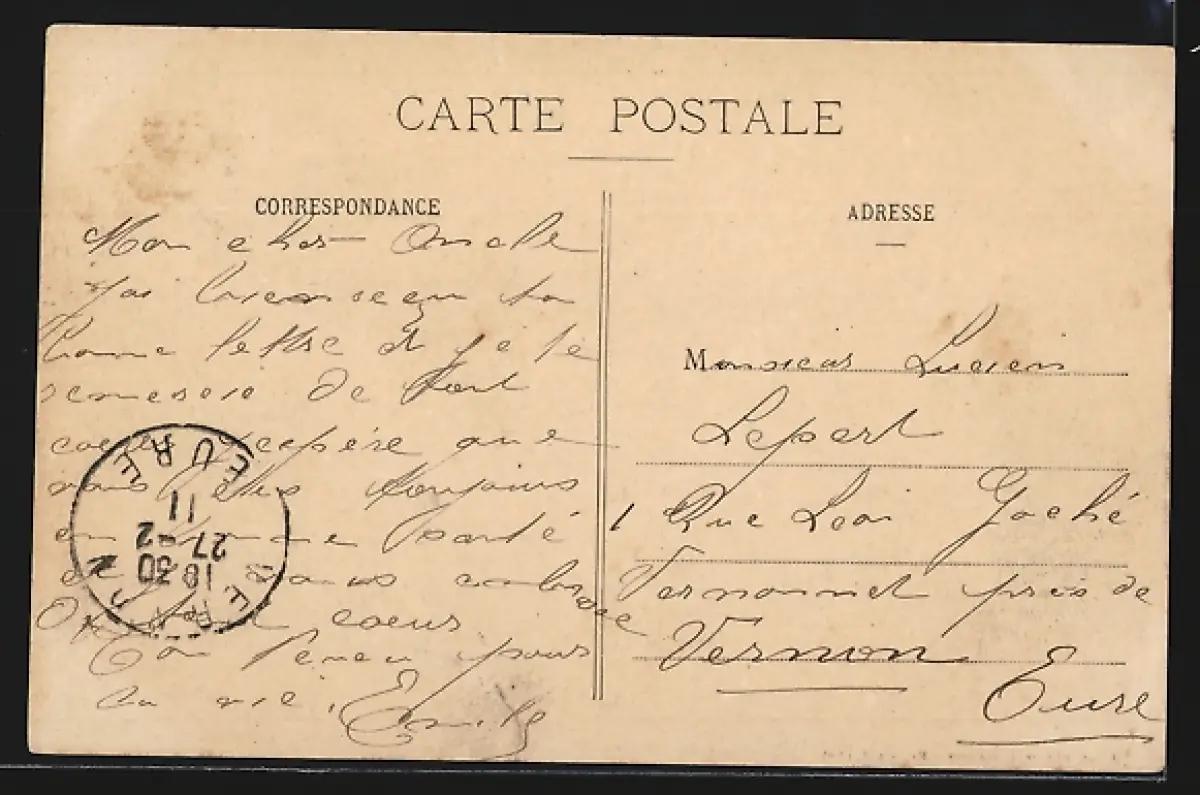 CARTE POSTALE
CORRESPONDANCE
Mon cher Oncle
J'ai bien reçu ta
bonne lettre et je te
remercie de tout
coeur j'espère que
vous êtes toujours
en bonne santé
je vous embrasse
tout coeur
Ton neveu pour
la vie, Emile
ADRESSE
Monsieur Lucien
Lepert
1 Rue Léon
Vernonnet près de
Vernon
Eure
EURE
11
27 -2
18 30